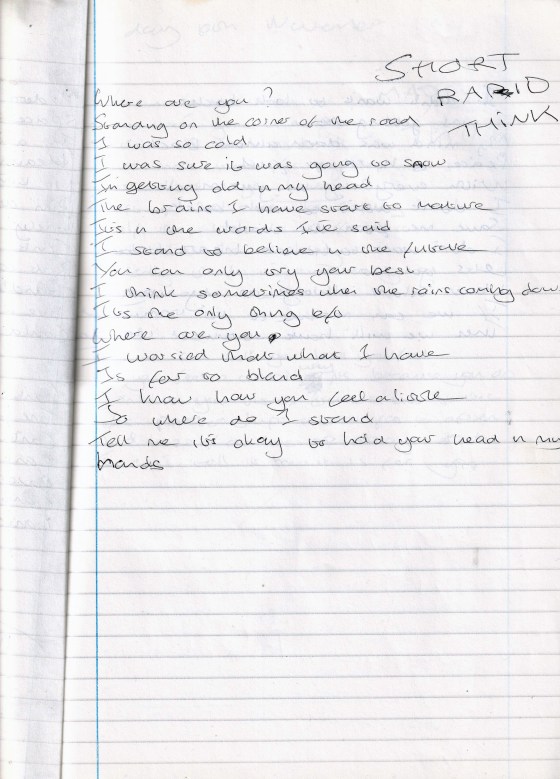 SHORT
RAPID
THINK
Where are you?
Standing on the corner of the road
I was so cold
I was sure it was going to snow
Im getting old n my head
The brains I have start to mature
It's n the words I've said
I stand to believe n the future
You can only try your best
I think sometimes when the rains coming down
Its the only thing
Where are you
I worried that what I have
Is far to bland
I know how you feel a little
So where do I stand
Tell me it's okay to hold your head n my
hands